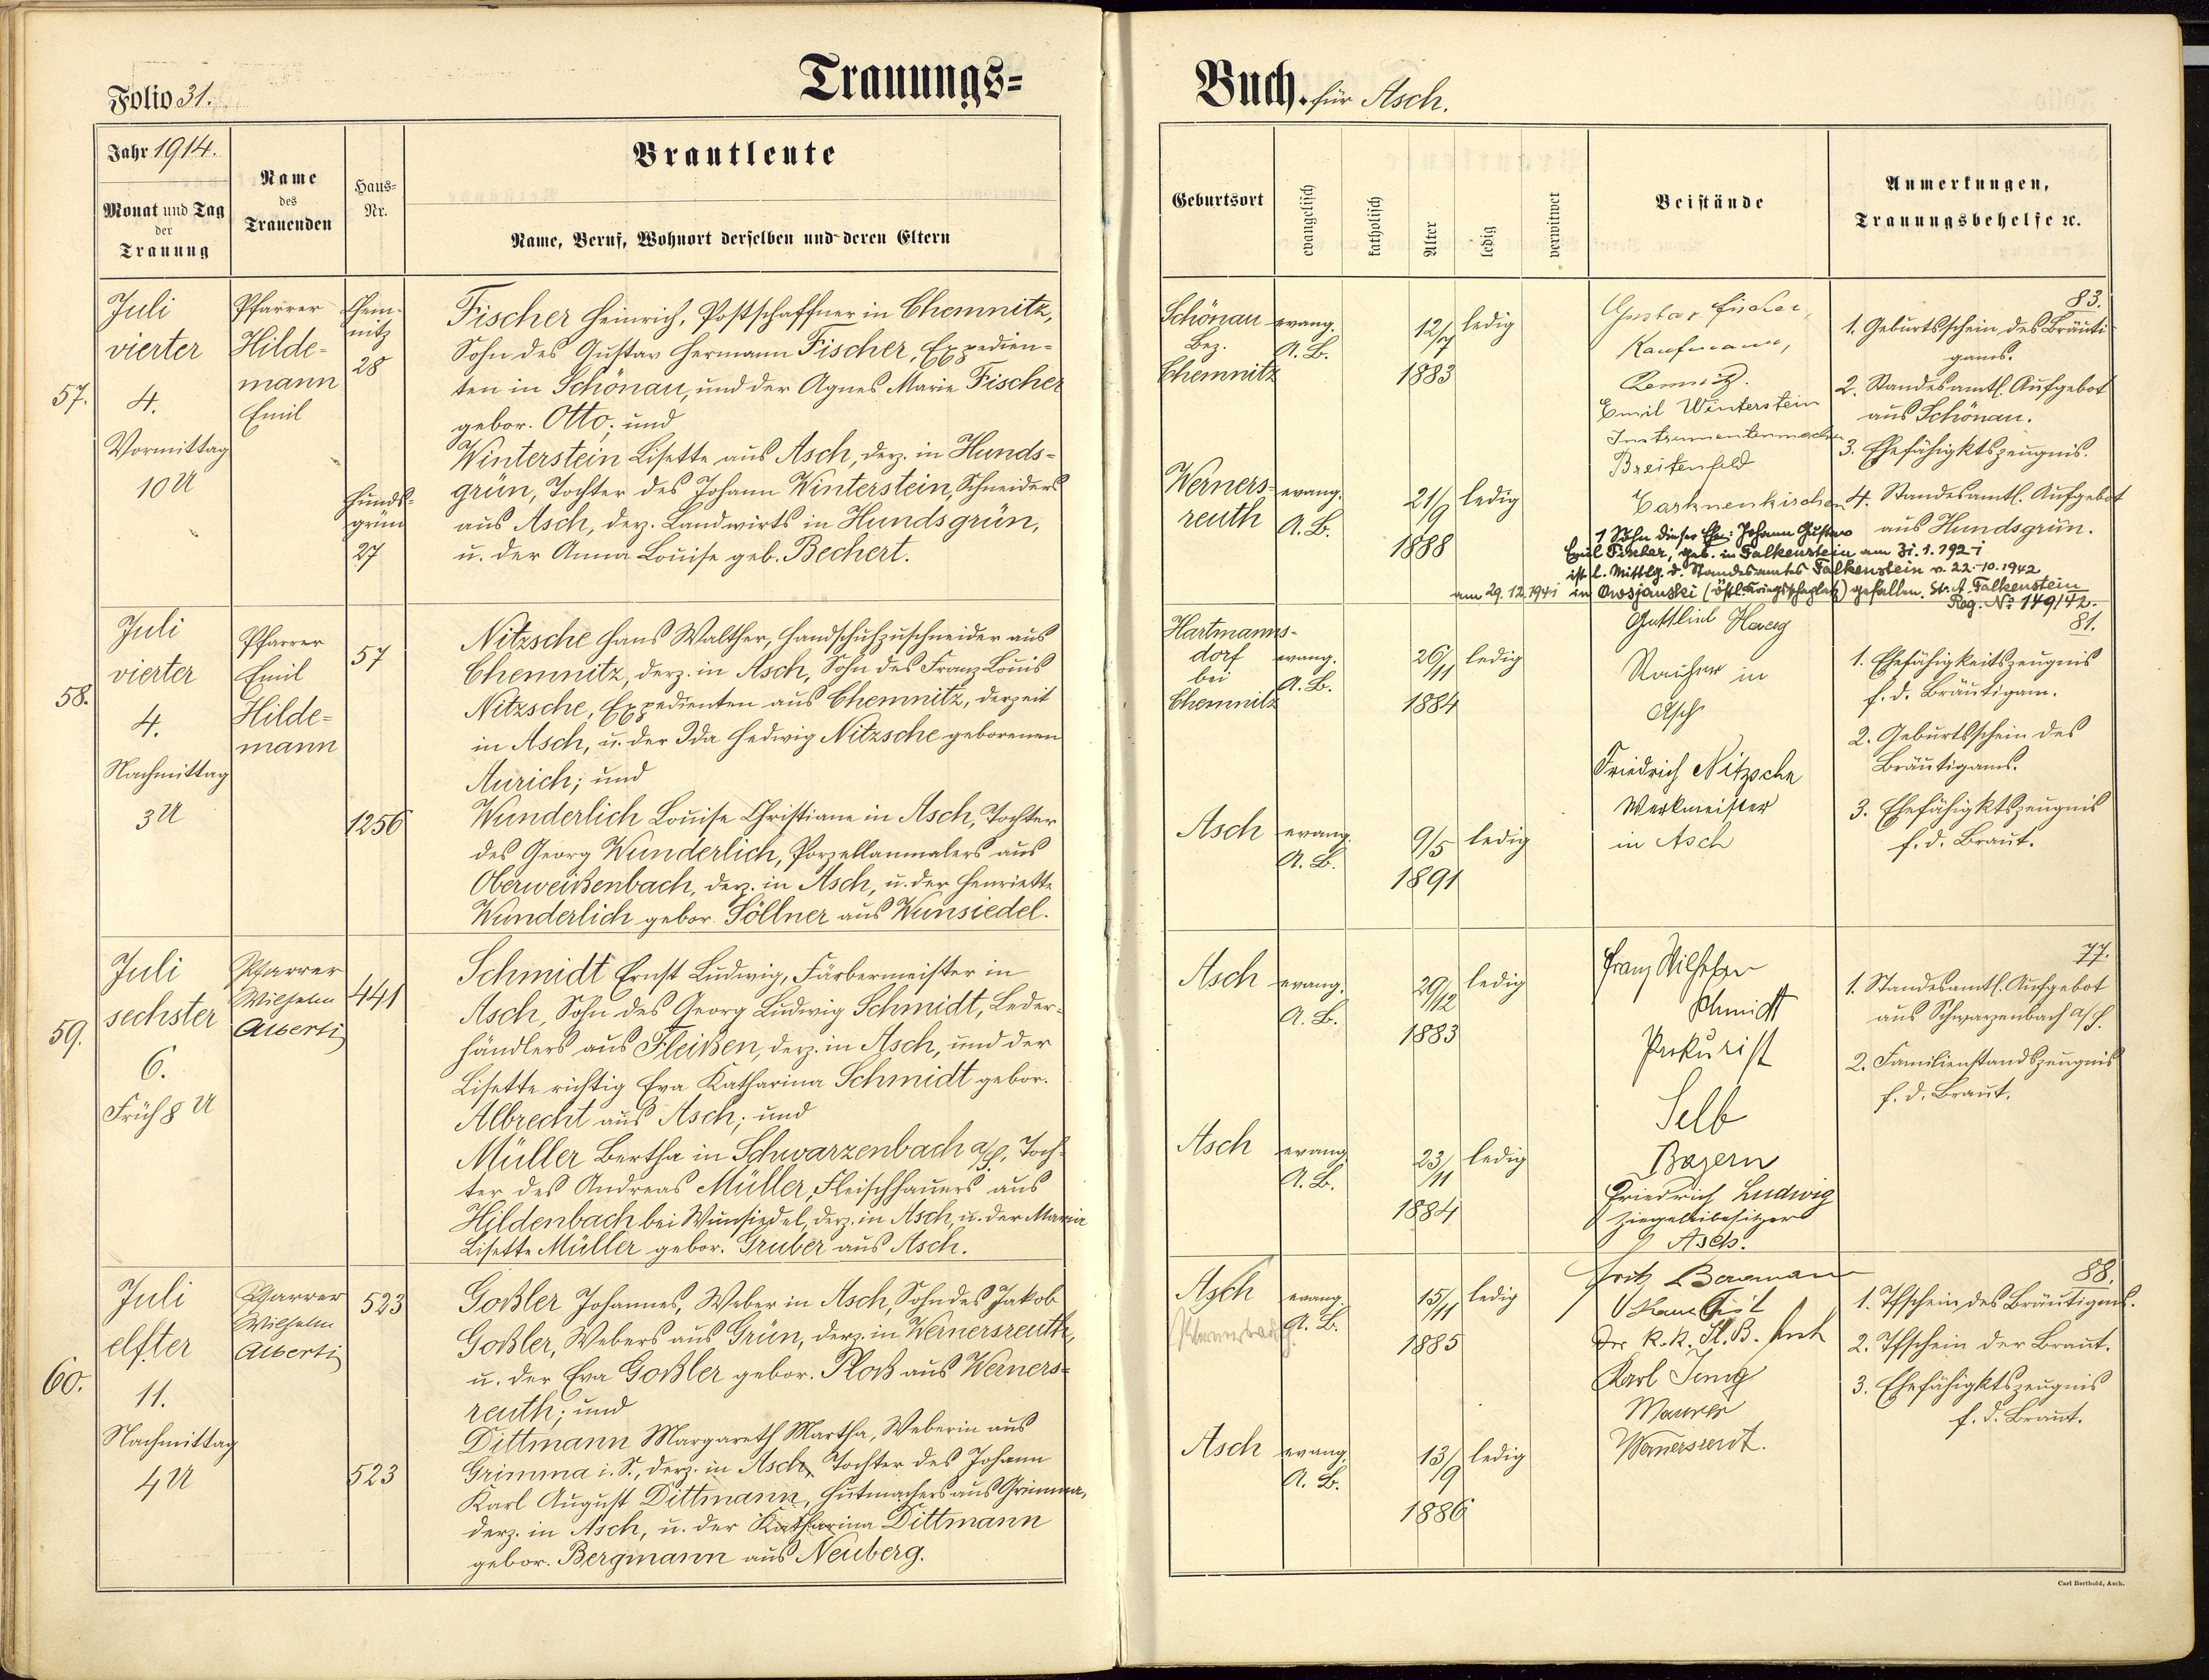 Folio 31.
Trauungs=
Jahr 1914.
Monat und Tag
der
Trauung
Name
des
Trauenden
Haus=
Nr.
Brautleute
Name, Beruf, Wohnort derselben und deren Eltern
57.
Juli
vierter
4.
Vormittag
10 U
Pfarrer
Hilde=
mann
Emil
Chem-
nitz
28
Hunds-
grün
27
Fischer Heinrich, Postschaffner in Chemnitz,
Sohn des Gustav Hermann Fischer, Expedien=
ten in Schönau, und der Agnes Marie Fischer
gebor. Otto; und
Winterstein Lisette aus Asch, derz. in Hunds=
grün, Tochter des Johann Winterstein, Schneiders
aus Asch, derz. Landwirts in Hundsgrün,
u. der Anna Louise geb. Bechert.
58.
Juli
vierter
4.
Nachmittag
3 U
Pfarrer
Emil
Hilde=
mann
57
1256
Nitzsche Hans Walther, Handschuhzuschneider aus
Chemnitz, derz. in Asch, Sohn des Franz Louis
Nitzsche, Expedienten aus Chemnitz, derzeit
in Asch, u. der Ida Hedwig Nitzsche geborenen
Aurich; und
Wunderlich Louise Christiane in Asch, Tochter
des Georg Wunderlich, Porzellanmalers aus
Oberweißenbach, derz. in Asch, u. der Henriette
Wunderlich gebor. Söllner aus Wunsiedel.
59.
Juli
sechster
6.
Früh 8 U
Pfarrer
Wilhelm
Alberti
441
Schmidt Ernst Ludwig, Färbermeister in
Asch, Sohn des Georg Ludwig Schmidt, Leder-
händlers aus Fleißen, derz. in Asch, und der
Lisette richtig Eva Katharina Schmidt gebor.
Albrecht aus Asch; und
Müller Bertha in Schwarzenbach a/S., Toch-
ter des Andreas Müller, Fleischhauers aus
Hildenbach bei Wunsiedel, derz. in Asch, u. der Maria
Lisette Müller gebor. Gruber aus Asch.
60.
Juli
elfter
11.
Nachmittag
4 U
Pfarrer
Wilhelm
Alberti
523
523
Goßler Johannes, Weber in Asch, Sohn des Jakob
Goßler, Webers aus Grün, derz. in Wernersreuth,
u. der Eva Goßler gebor. Ploß aus Werners=
reuth; und
Dittmann Margareth Martha, Weberin aus
Grimma i. S., derz. in Asch, Tochter des Johann
Karl August Dittmann, Hutmachers aus Grimma,
derz. in Asch, u. der Katharina Dittmann
gebor. Bergmann aus Neuberg.
Buch. für Asch.
Geburtsort
evangelisch
katholisch
Alter
ledig
verwitwet
Beistände
Anmerkungen,
Trauungsbehelfe ec.
Schönau
Bez.
Chemnitz
evang.
A. B.
12/7
1883
ledig
Gustav Fischer,
Kaufmann,
Chemnitz.
Emil Winterstein
Instrumentenmacher
Breitenfeld
83.
1. Geburtsschein des Bräuti
gams.
2. Standesamtl. Aufgebot
aus Schönau.
3. Ehefähigktszeugnis.
4. Standesamtl. Aufgebot
aus Hundsgrün.
Werners-
reuth
evang.
A. B.
21/9
1888
ledig
1 Sohn dieser Ehe: Johann Gustav
Emil Fischer, geb. in Falkenstein am 31.1.1921
ist l. Mittlg. d. Standesamtes Falkenstein v. 22.10.1942
am 29.12.1941 in Owsjanski (östl. Kriegsschaplatz) gefallen. St. A. Falkenstein
Reg. No 149/42.
Hartmanns-
dorf
bei
Chemnitz
evang.
A. B.
26/11
1884
ledig
Gottlieb
in
Asch
Friedrich Nitzsche
Werkmeister
in Asch
81.
1. Ehefähigkeitszeugnis
f. d. Bräutigam.
2. Geburtsschein des
Bräutigams.
3. Ehefähigktszeugnis
f. d. Braut.
Asch
evang.
A. B.
9/5
1891
ledig
Asch
evang.
A. B.
29/12
1883
ledig
Franz Wilhelm
Schmidt
Prokurist
Selb
Bayern
Friedrich Ludwig
Ziegeleibesitzer
Asch.
77.
1. Standesamtl. Aufgebot
aus Schwarzenbach a/S.
2. Familienstandszeugnis
f. d. Braut.
Asch
evang.
A. B.
23/11
1884
ledig
Asch
evang.
A. B.
15/11
1885
ledig
Fritz Bergmann
Karl
Maurer
Wernersreut.
88.
1. Tfschein des Bräutigams.
2. Tfschein der Braut.
3. Ehefähigktszeugnis
f. d. Braut.
Asch
evang.
A. B.
13/9
1886
ledig
Carl Berthold, Asch.